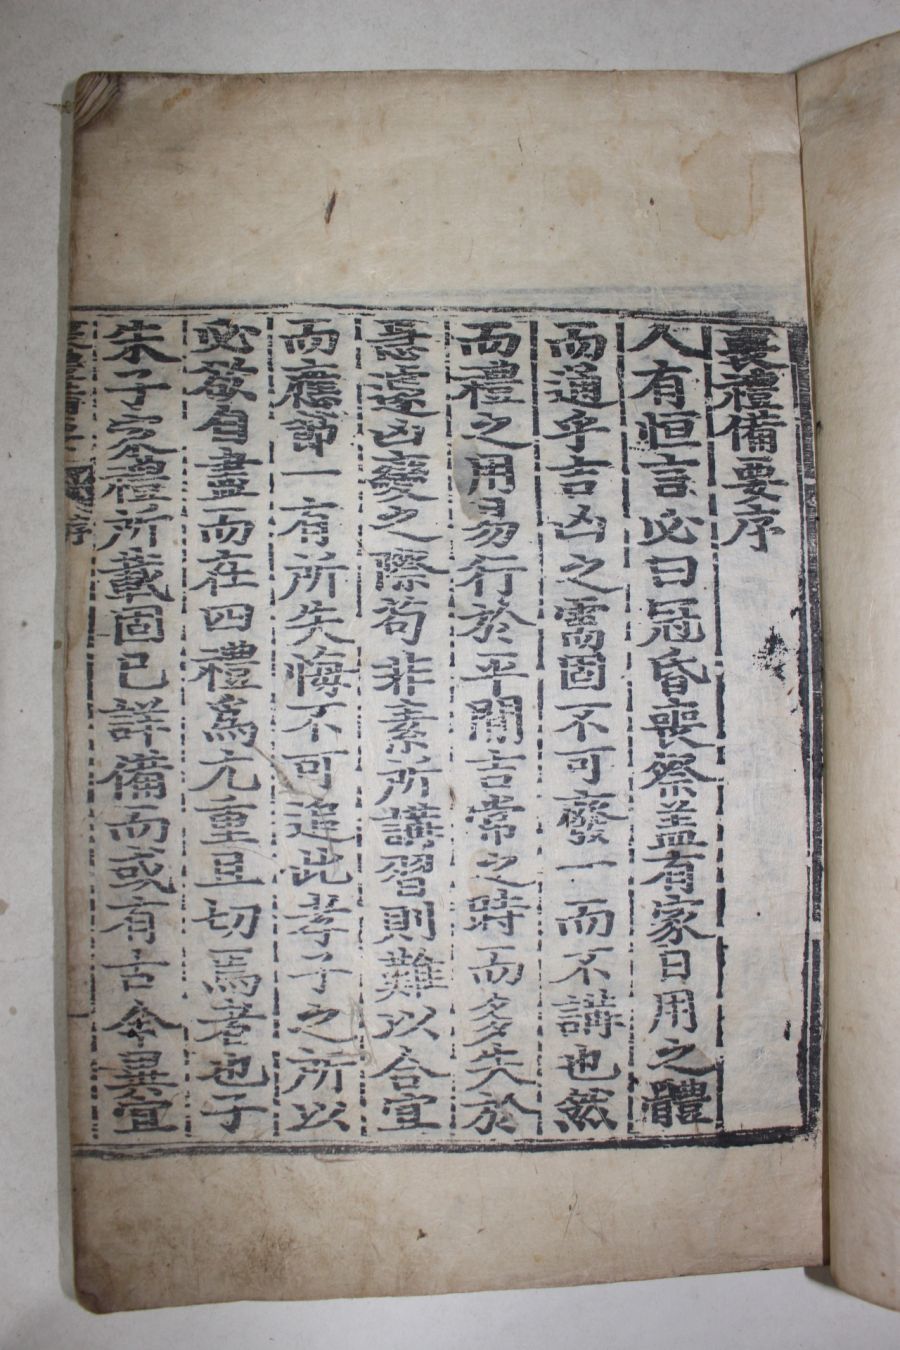 喪禮備要序
人有恒言必曰冠昏喪祭盖有家日用之體
而通乎吉凶之需固不可癈一而不講也然
而禮之用易行於平閒吉常之時而多失於
急遽凶變之際苟非素所講習則難以合宜
而應節一有所失悔不可追此孝子之所以
必欲自盡而在四禮爲尤重且切焉者也子
朱子家禮所載固已詳備而或有古今異宜
序
一